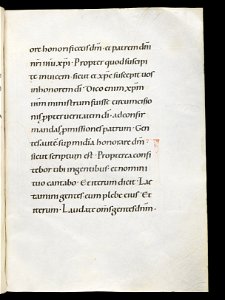 ore honorificetis dm̄· et patrem dn̄i
nr̄i ihū xp̄i· Propter quod suscipi
te inuicem· sicut et xp̄s suscepit uos
inhonorem dī· Dico enim xp̄m
ihm̄ ministrum fuisse circumcisio
nis, ꝓpter ueritatem dī· ad confir
mandas ꝓmissiones patrum· Gen
tes aut̄ sup mīdia honorare dm̄·
sicut scriptum est· Propterea confi
tebor tibi ingentibus et nomini
tuo cantabo· Et iterum dicit· Lae
tamini gentes cum plebe eius· Et
iterum· Laudate om̄s gentes dn̄m·